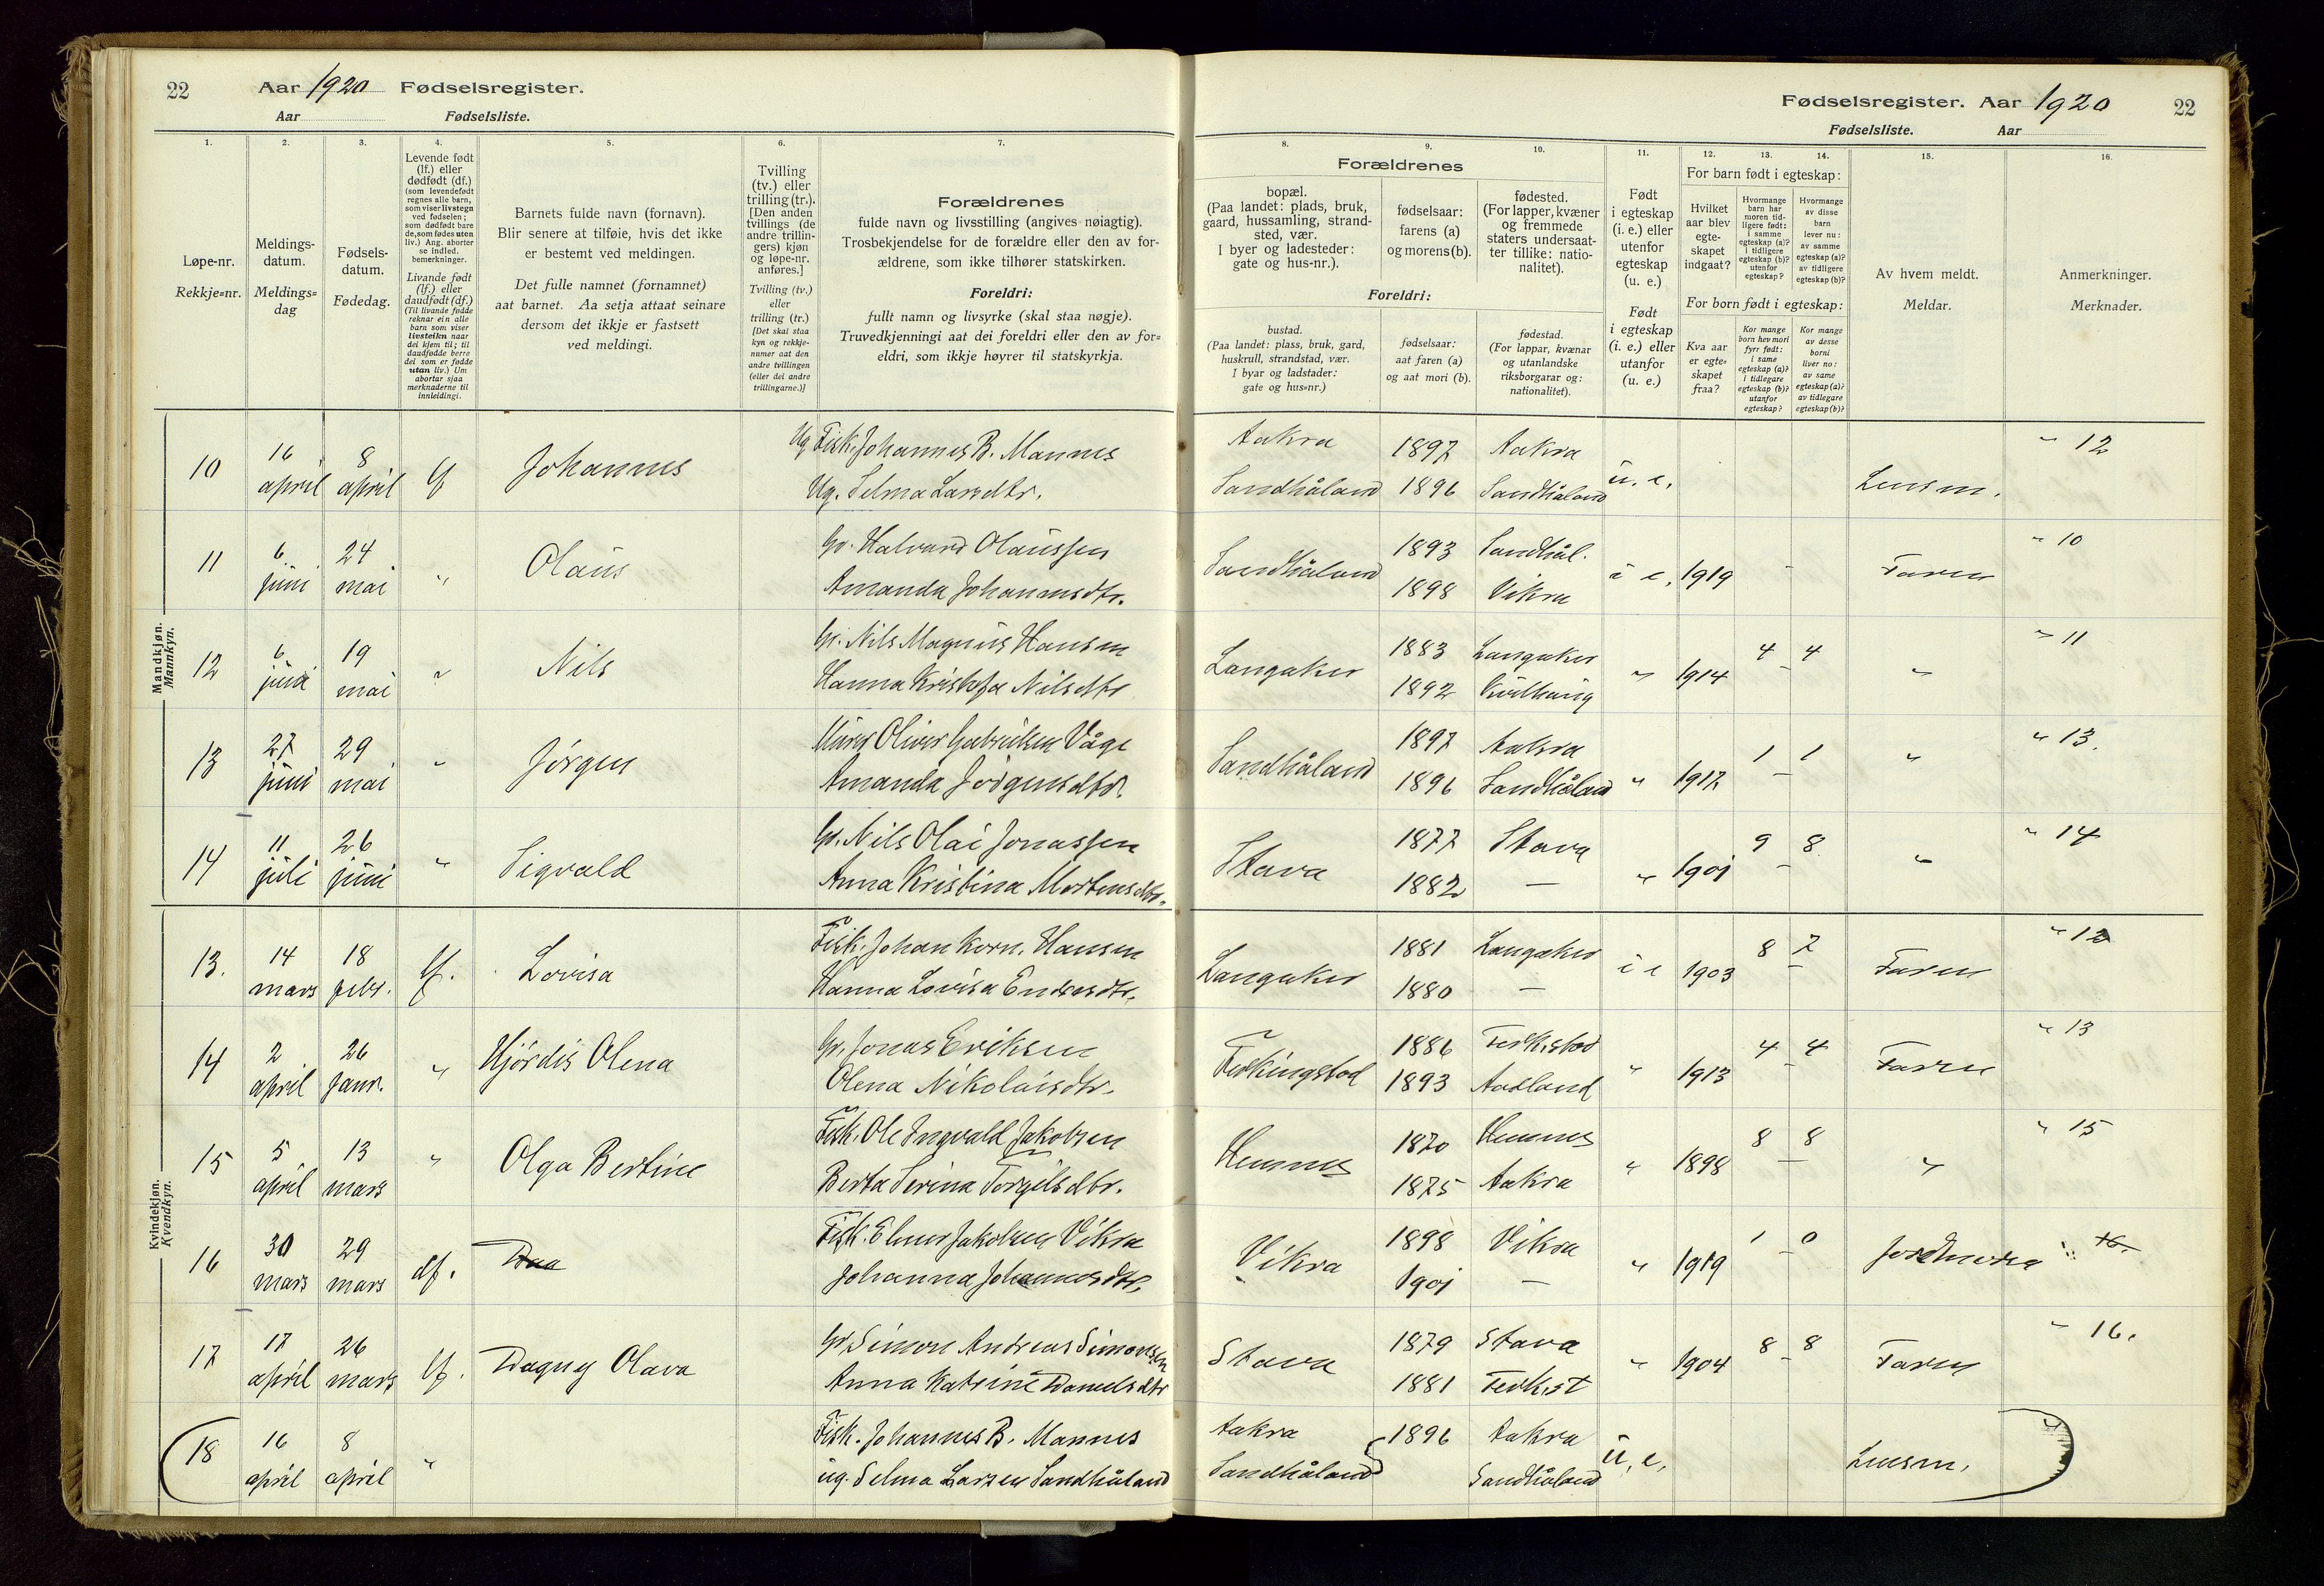 22 Aar 1920 Fødselsregister.
Aar Fødselsliste.
Fødselsregister. Aar 1920 22
Fødselsliste. Aar
1. 2. 3. 4. 5. 6. 7. 8. 9. 10. 11. 12. 13. 14. 15. 16.
Løpe-nr.
Rekkje=nr.
Meldings-
datum.
Meldings=
dag
Fødsels-
datum.
Fødedag.
Levende født
(lf.) eller
dødfødt (df.)
(som levendefødt
regnes alle barn,
som viser livstegn
ved fødselen;
som dødfødt bare
de, som fødes uten
liv.) Ang. aborter
se indled.
bemerkninger.
Livande født
(lf.) eller
daudfødt (df.)
(Til livande fødde
reknar ein alle
barn som viser
livsteikn naar
dei kjem til; til
daudfødde berre
dei som er fødde
utan liv.) Um
abortar sjaa
merknaderne til
innleidingi.
Barnets fulde navn (fornavn).
Blir senere at tilføie, hvis det ikke
er bestemt ved meldingen.
Det fulle namnet (fornamnet)
aat barnet. Aa setja attaat seinare
dersom det ikkje er fastsett
ved meldingi.
Tvilling
(tv.) eller
trilling (tr.).
[Den anden
tvillings (de
andre trillin-
gers) kjøn
og løpe-nr.
anføres.]
Tvilling (tv.)
eller
trilling (tr.)
[Det skal staa
kyn og rekkje-
numer aat den
andre tvillingen
(eller dei andre
trillingarne.)]
Forældrenes
fulde navn og livsstilling (angives nøiagtig).
Trosbekjendelse for de forældre eller den av for-
ældrene, som ikke tilhører statskirken.
Foreldri:
fullt namn og livsyrke (skal staa nøgje).
Truvedkjenningi aat dei foreldri eller den av for=
eldri, som ikkje høyrer til statskyrkja.
Forældrenes
bopæl.
(Paa landet: plads, bruk,
gaard, hussamling, strand-
sted, vær.
I byer og ladesteder:
gate og hus-nr.).
fødselsaar:
farens (a)
og morens (b).
fødested.
(For lapper, kvæner
og fremmede
staters undersaat-
ter tillike: natio-
nalitet).
Foreldri:
bustad.
(Paa landet: plass, bruk, gard,
huskrull, strandstad, vær.
I byar og ladstader:
gate og hus=nr.)
fødselsaar:
aat faren (a)
og aat mori (b).
fødestad.
(For lappar, kvænar
og utanlandske
riksborgarar og:
nationalitet).
Født
i egteskap
(i. e.) eller
utenfor
egteskap
(u. e.)
Født
i egteskap
(i. e.) eller
utanfor
(u. e.)
For barn født i egteskap:
Hvilket
aar blev
egte-
skapet
indgaat?
Hvormange
barn har
moren tid-
ligere født:
i samme
egteskap (a)?
i tidligere
egteskap (b)?
utenfor
egteskap?
Hvormange
av disse
barn
lever nu:
av samme
egteskap (a)?
av tidligere
egteskap (b)?
For born født i egteskap:
Kva aar
er egte=
skapet
fraa?
Kor mange
born hev mori
fyrr født:
i same
egteskap (a)?
i tidlegare
egteskap (b)?
utanfor
egteskap?
Kor mange
av desse
borni
liver no:
av same
egteskap (a)?
av tidlegare
egteskap (b)?
Av hvem meldt.
Meldar.
Anmerkninger.
Merknader.
Mandkjøn.
Mannkyn.
10 16 april 8 april lf Johannes Ug. Fisk. Johannes B. Mannes Aakra 1897 Aakra u. e. Lensm. " 12
Ug. Selma Larsdtr. Sandhåland 1896 Sandhåland
11 6 juni 24 mai " Olaus Gr. Halvard Olaussen Sandhåland 1893 Sandhål. i e. 1919 - Faren " 10
Amanda Johannesdtr. 1898 Vikra
12 6 juni 19 mai " Nils Gr. Nils Magnus Hansen Langaker 1883 Langaker " 1914 4 - 4 " " 11
Hanna Kristofa Nilsdtr 1892
13 27 juni 29 mai " Jørgen Oliver Gabrielsen Våge Sandhåland 1897 Aakra " 1917 1 - 1 " " 13.
Amanda Jørgensdtr. 1896 Sandhåland
14 11 juli 26 juni " Sigvald Gr. Nils Olai Jonassen Stava 1877 Stava " 1901 9 - 8 " " 14
Anna Kristina Mortensdtr. 1882 —
Kvindekjøn.
Kvendkyn.
13. 14 mars 18 febr. lf. Lovisa Fisk. Johan Korn. Hansen Langaker 1881 Langaker i e 1903 8 - 7 Faren " 12
Hanna Lovisa Endresdtr. 1880 —
14 2 april 26 janr. " Hjørdis Olena Gr. Jonas Eriksen Ferkingstad 1886 Ferkistad " 1913 4 - 4 Faren " 13
Olena Nikolaisdtr. 1893 Aadland
15 5 april 13 mars " Olga Bertine Fisk. Ole Ingvald Jakobsen Hemnes 1870 Hemnes " 1898 8 - 8 " " 15
Berta Serina Torgilsdtr. 1875 Aakra
16 30 mars 29 mars df. Fisk. Elmer Jakobsen Vikra Vikra 1898 Vikra " 1919 1 - 0 Jordmora " 16.
Johanna Johannesdtr. 1901 —
17 17 april 26 mars lf. Dagny Olava Gr. Simon Andreas Simonsen Stava 1879 Stava " 1904 8 - 8 Faren " 16.
Anna Katrine Danielsdtr 1881 Ferkist
18 16 april 8 april " Fisk. Johannes B. Mannes Aakra 1896 Aakra u. e. Lensm. "
ug. Selma Larsen Sandhåland Sandhåland Sandhåland